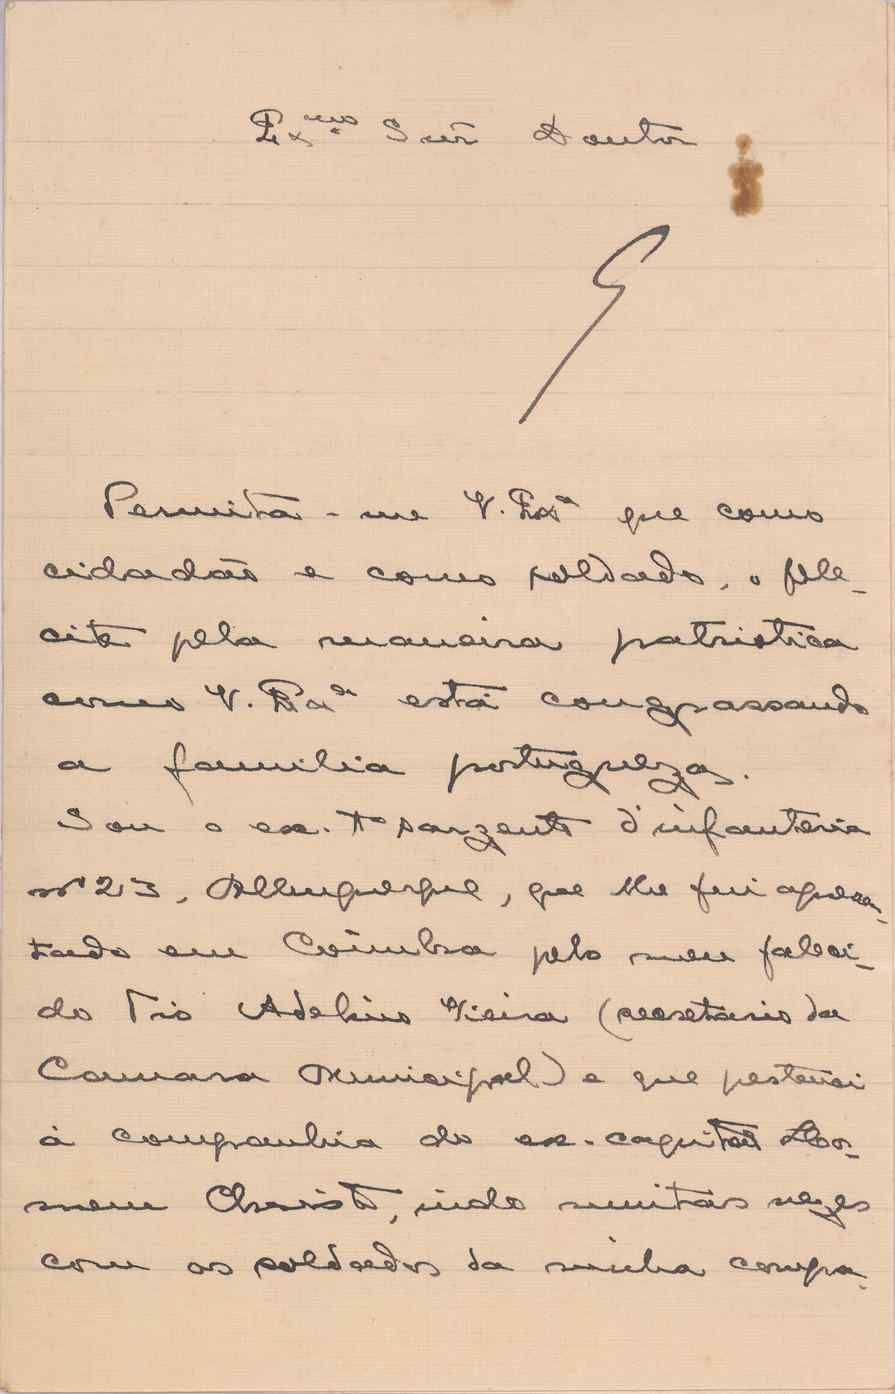 Ex.mo Snr Doutor
Permita-me V. Exª que como
cidadão e como soldado, o feli-
cite pela maneira patriotica
como V. Exª está congrassando
a familia portugueza.
Sou o ex. 1º sargento d'infanteria
nº 23, Albuquerque, que lhe fui apresen-
tado em Coimbra pelo meu faleci-
do Tio Adelino Vieira (secretario da
Camara Municipal) e que pertenci
á companhia do ex-capitão Ho-
mem Christo, indo muitas vezes
com os soldados da minha compa-